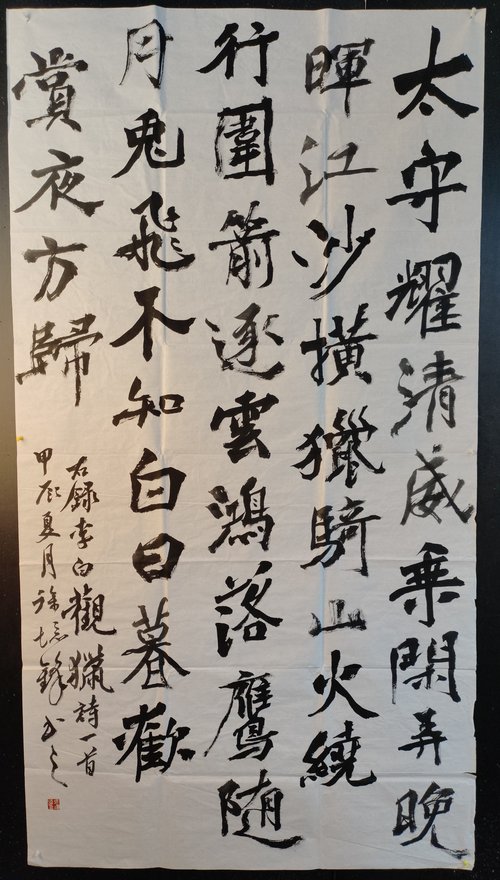 太守耀清威乘閑弄晚
暉江沙橫獵騎山火繞
行圍箭逐雲鴻落鷹隨
月兔飛不知白日暮歡
賞夜方歸
右録李白觀獵詩一首
甲辰夏月徐志鋒书之